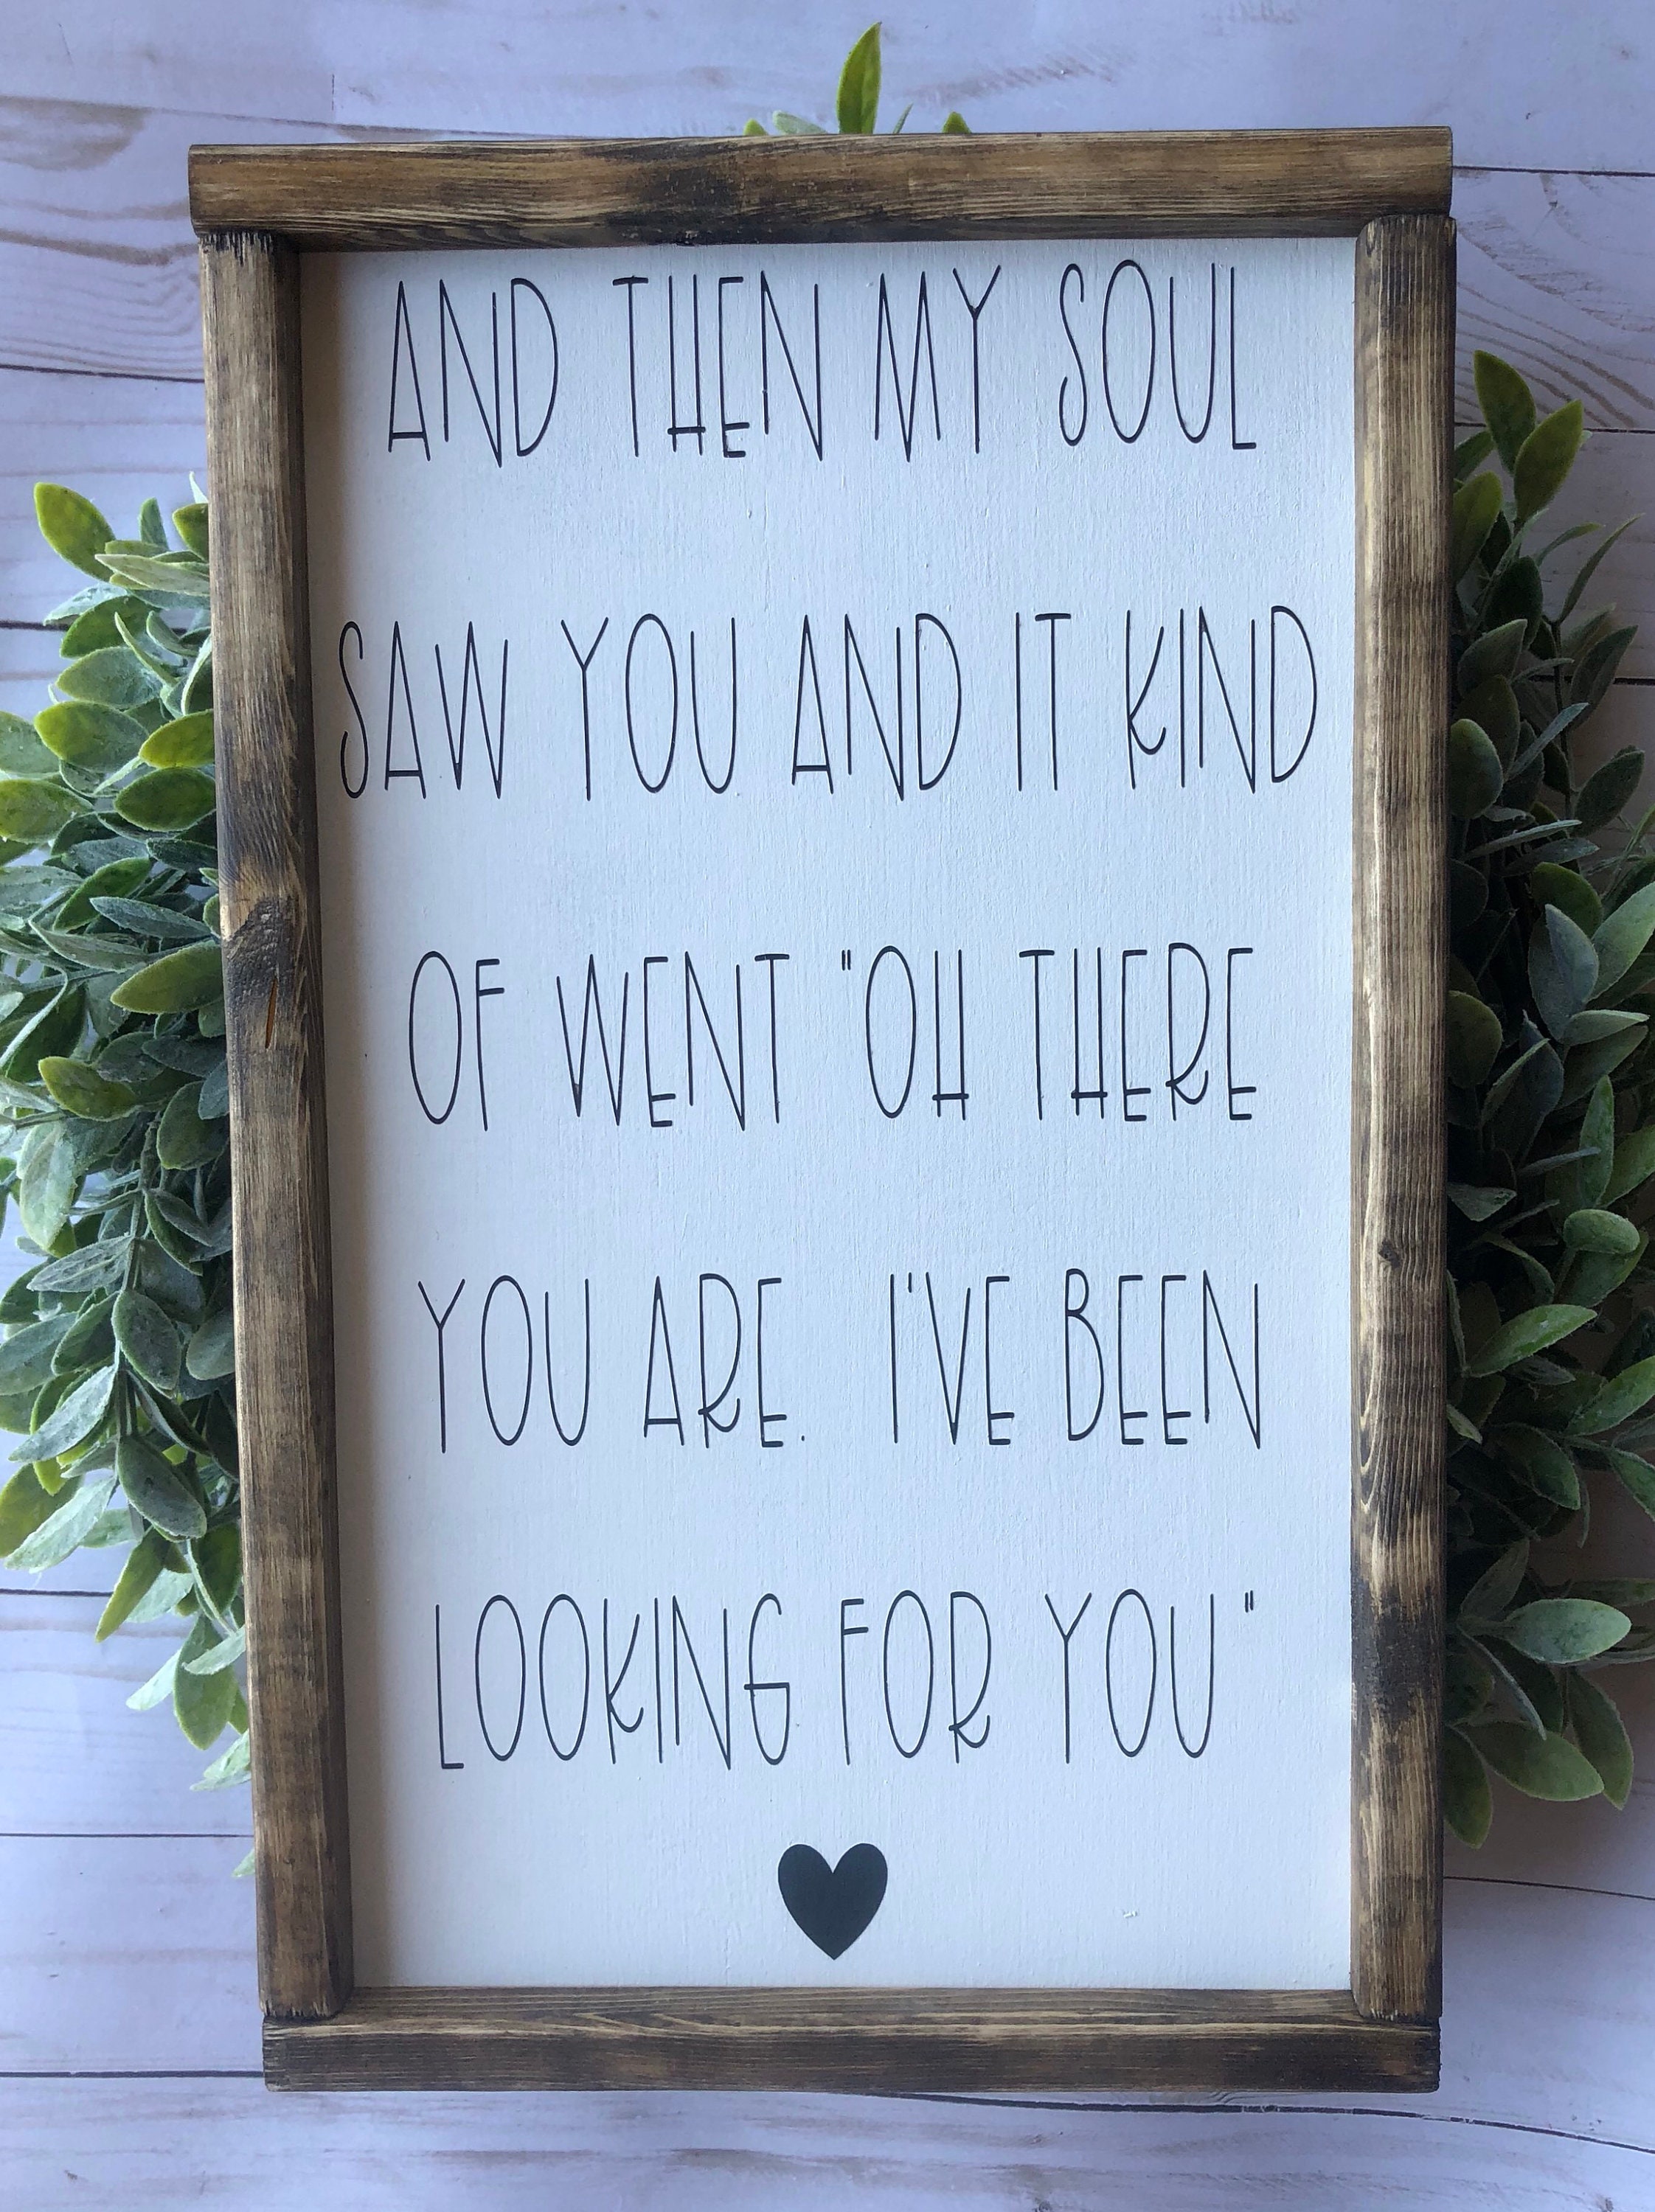 AND THEN MY SOUL
SAW YOU AND IT KIND
OF WENT "OH THERE
YOU ARE. I'VE BEEN
LOOKING FOR YOU"